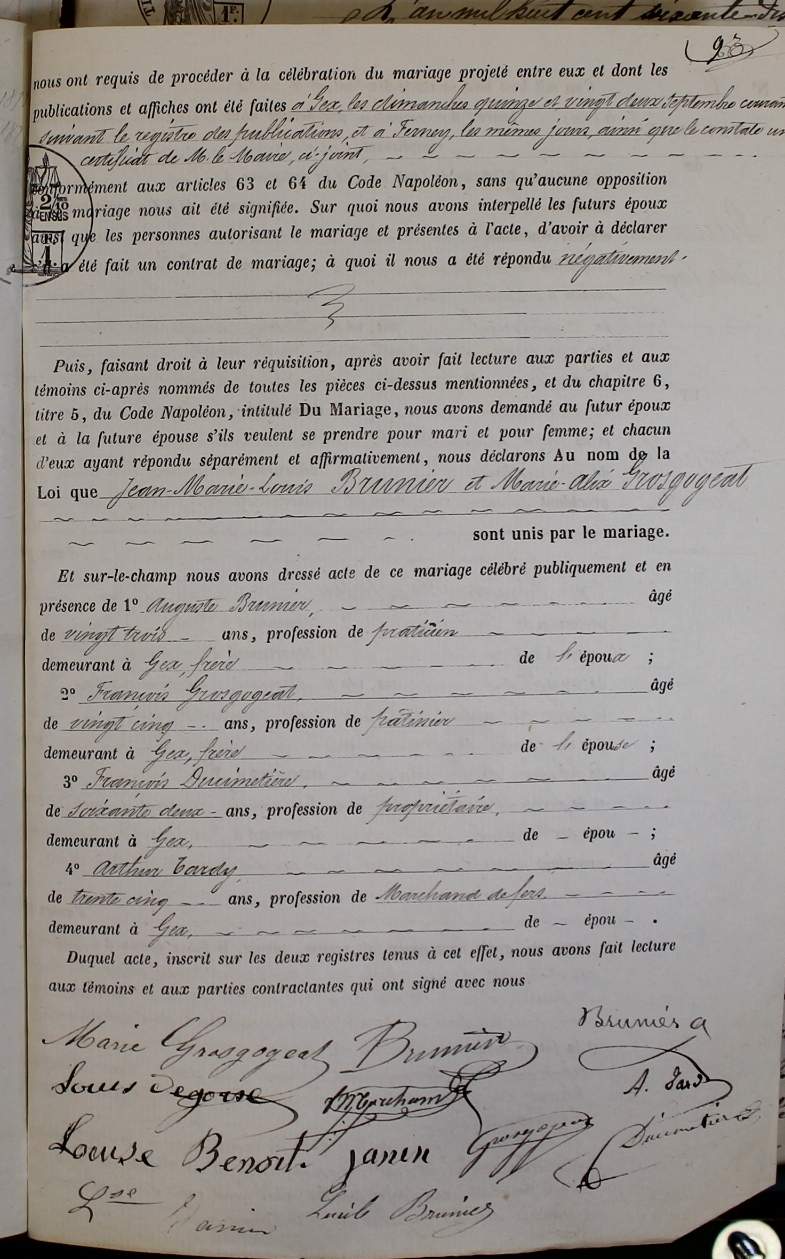 L'an mil huit cent soixante-
1F.
93
nous ont requis de procéder à la célébration du mariage projeté entre eux et dont les
publications et affiches ont été faites à Gex, les dimanches quinze et vingt deux septembre courant
suivant le registre des publications, et à Ferney, les mêmes jours, ainsi que le constate un
certificat de M. le Maire, ci-joint,
conformément aux articles 63 et 64 du Code Napoléon, sans qu'aucune opposition
mariage nous ait été signifiée. Sur quoi nous avons interpellé les futurs époux
ainsi que les personnes autorisant le mariage et présentes à l'acte, d'avoir à déclarer
a été fait un contrat de mariage; à quoi il nous a été répondu négativement.
2/10
EN SUS
Puis, faisant droit à leur réquisition, après avoir fait lecture aux parties et aux
témoins ci-après nommés de toutes les pièces ci-dessus mentionnées, et du chapitre 6,
titre 5, du Code Napoléon, intitulé Du Mariage, nous avons demandé au futur époux
et à la future épouse s'ils veulent se prendre pour mari et pour femme; et chacun
d'eux ayant répondu séparément et affirmativement, nous déclarons Au nom de la
Loi que Jean-Marie-Louis Brunier et Marie-Alix Grosgogeat
sont unis par le mariage.
Et sur-le-champ nous avons dressé acte de ce mariage célébré publiquement et en
présence de 1° Auguste Brunier, âgé
de vingt trois ans, profession de praticien
demeurant à Gex, frère de l'époux ;
2° François Grosgogeat, âgé
de vingt cinq ans, profession de
demeurant à Gex, frère de l'épouse ;
3° François Ducimetière, âgé
de soixante deux ans, profession de propriétaire,
demeurant à Gex, de épou ;
4° Arthur Tardy âgé
de trente cinq ans, profession de Marchand de fers
demeurant à Gex, de épou .
Duquel acte, inscrit sur les deux registres tenus à cet effet, nous avons fait lecture
aux témoins et aux parties contractantes qui ont signé avec nous
Marie Grosgogeat Brunier Brunier a
Louis Degorse A. Tardy
Louise Benoit. Janin Grosgogeat Ducimetière
Lse Janin Lucile Brunier